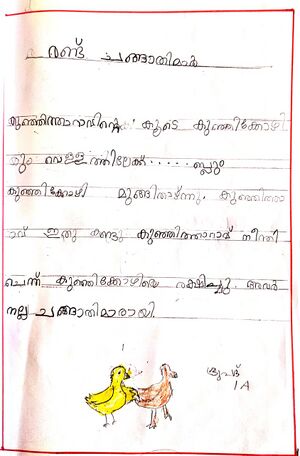 രണ്ട് ചങ്ങാതിമാർ
കുഞ്ഞിത്താറാവിന്റെ കൂടെ കുഞ്ഞിക്കോഴി
യും വെള്ളത്തിലേക്ക് ...... ബ്ലും
കുഞ്ഞിക്കോഴി മുങ്ങിതാഴ്ന്നു. കുഞ്ഞിത്താ
റാവ് ഇതു കണ്ടു കുഞ്ഞിത്താറാവ് നീന്തി
ചെന്ന് കുഞ്ഞിക്കോഴിയെ രക്ഷിച്ചു. അവർ
നല്ല ചങ്ങാതിമാരായി.
1 A